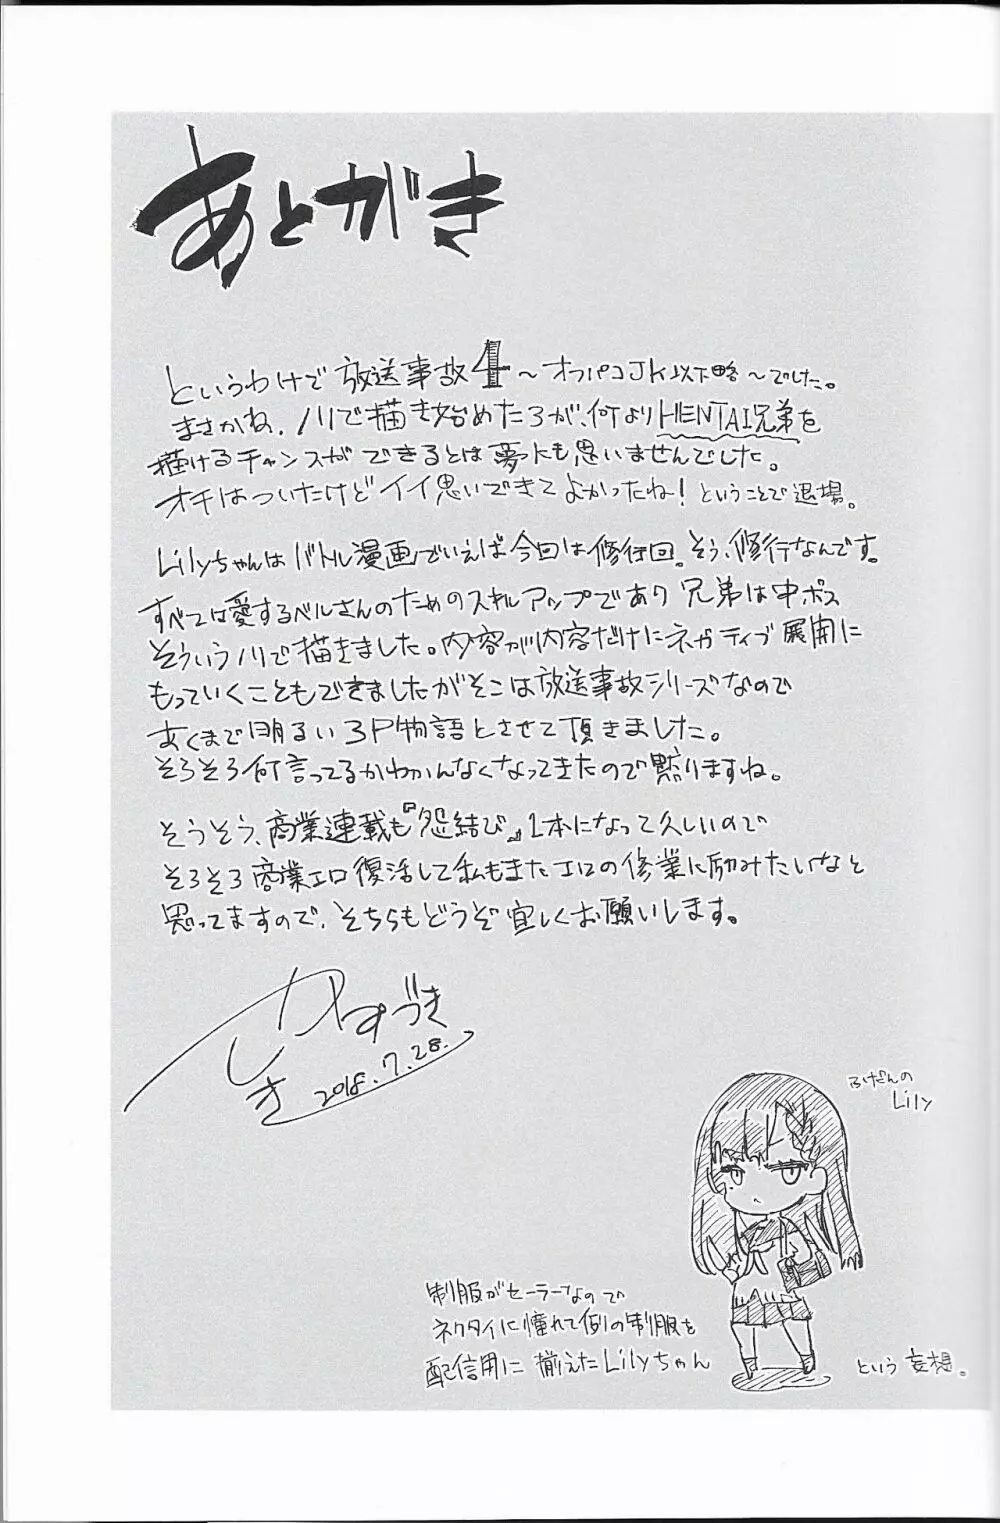 あとがき
というわけで放送事故4～オフパコJK以下略～でした。
まさかね、ノリで描き始めたろが、何よりHENTAI兄弟を
描けるチャンスができるとは夢にも思いませんでした。
オチはついたけどイイ思いできてよかったね！ということで退場。
Lilyちゃんはバトル漫画でいえば今回は修行回。そう、修行なんです。
すべては愛するベルさんのためのスキルアップであり兄弟は中ボス
そういうノリで描きました。内容が内容だけにネガティブ展開に
もっていくこともできましたがそこは放送事故シリーズなので
あくまで明るい3P物語とさせて頂きました。
そろそろ何言ってるかわかんなくなってきたので黙りますね。
そうそう、商業連載も『怨結び』1本になって久しいので
そろそろ商業エロ復活して私もまたエロの修業に励みたいなと
思ってますので、そちらもどうぞ宜しくお願いします。
かずづき
しき
2018.7.28.
ふだんの
Lily
制服がセーラーなので
ネクタイに憧れて例の制服を
配信用に揃えたLilyちゃん
という妄想。